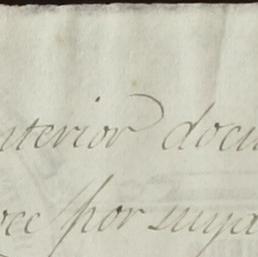 nterior docu
oce por suya